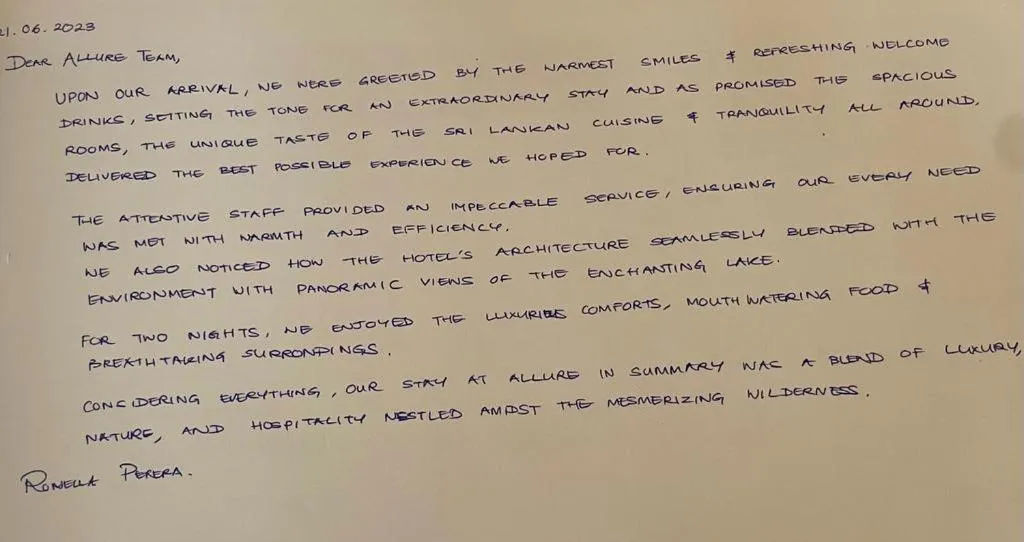 21.06.2023
DEAR ALLURE TEAM,
UPON OUR ARRIVAL, WE WERE GREETED BY THE WARMEST SMILES & REFRESHING WELCOME
DRINKS, SETTING THE TONE FOR AN EXTRAORDINARY STAY AND AS PROMISED THE SPACIOUS
ROOMS, THE UNIQUE TASTE OF THE SRI LANKAN CUISINE & TRANQUILITY ALL AROUND,
DELIVERED THE BEST POSSIBLE EXPERIENCE WE HOPED FOR.
THE ATTENTIVE STAFF PROVIDED AN IMPECCABLE SERVICE, ENSURING OUR EVERY NEED
WAS MET WITH WARMTH AND EFFICIENCY.
WE ALSO NOTICED HOW THE HOTEL'S ARCHITECTURE SEAMLESSLY BLENDED WITH THE
ENVIRONMENT WITH PANORAMIC VIEWS OF THE ENCHANTING LAKE.
FOR TWO NIGHTS, WE ENJOYED THE LUXURIES COMFORTS, MOUTHWATERING FOOD &
BREATHTAKING SURRONDINGS.
CONSIDERING EVERYTHING, OUR STAY AT ALLURE IN SUMMARY WAS A BLEND OF LUXURY,
NATURE, AND HOSPITALITY NESTLED AMIDST THE MESMERIZING WILDERNESS.
PERERA.